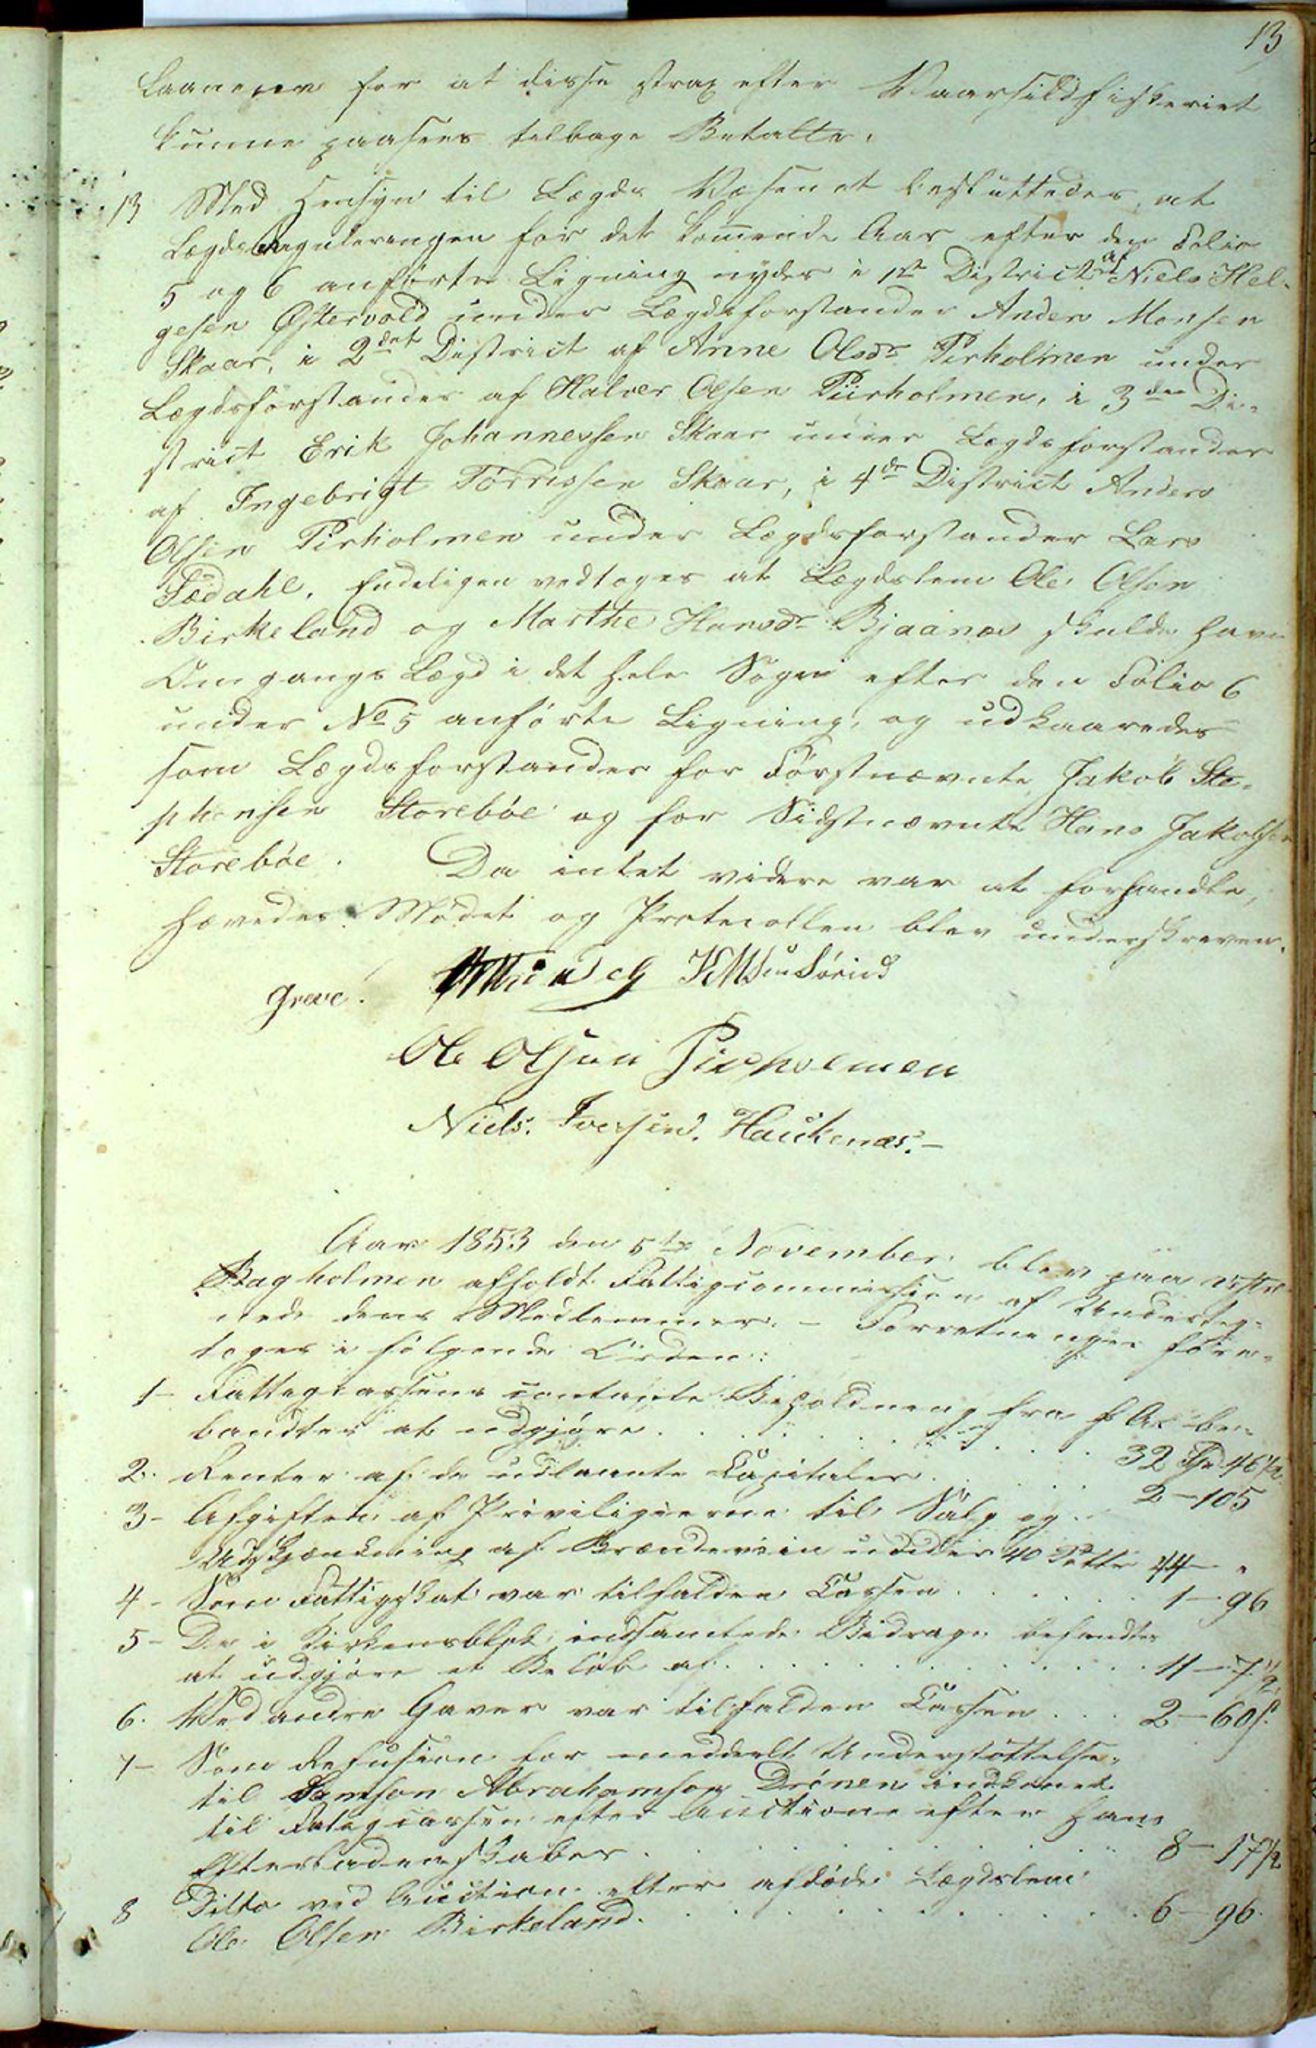 13
Laanene for at disse strax efter Vaarsildfiskeriet
kunne paasees tilbage Betalte.
13 Med Hensyn til Lægds Væsenet besluttedes, at
Lægdsreguleringen for det kommende Aar efter den Folio
5 og 6 anførte Ligning nydes i 1ste District af Niels Hel-
gesen Østervold under Lægdsforstander Anders Monsen
Skaar, i 2det District af Anne Olsdr Pirholmen under
Lægdsforstander af Halvor Olsen Piirholmen, i 3die Di-
strict Erik Johannessen Skaar under Lægdsforstander
af Ingebrigt Torrissen Skaar, i 4de District Anders
Olsen Pirholmen under Lægdsforstander Lars
Fædahl. Endeligen vedtoges at Lægdslem Ole Olsen
Birkeland og Marthe Hansdr Bjaanæs skulde have
Omgangs Lægd i det hele Sogn efter den Folio 6
under No 5 anførte Ligning, og udkaaredes
som Lægdsforstander for Førstnævnte Jakob Ste-
phensen Storebøe og for Sidstnævnte Hans Jakobsen
Storebøe. Da intet videre var at forhandle,
hævedes Mødet og Protocollen blev underskreven.
Greve. Sørud
Ole Olsen Pirholmen
Niels. Iversen. Haukenæs.-
Aar 1853 den 5te November blev paa
Bagholmen afholdt Fattigcommission af Underteg-
nede dens Medlemmer. - Forretningen fore-
toges i følgende Orden:
1- Fattigcassens contante Beholdning fra f. A. be-
fandtes at udgjøre . . . . 32 Spd 46 1/2
2. Renter af de udlaante Capitaler . . . . 2 - 105
3- Afgiften af Priviligierne til Salg og
Udskjænkning af Brændeviin under 40 Potter 44 - "
4- Som Fattigskat var tilfalden Cassen . . . . 1 - 96
5- De i Kirkensblok indsamlede Bidrage befandtes
at udgjøre et Beløb af . . . . 11 - 7 1/2
6. Ved andre Gaver var tilfalden Cassen . . . 2 - 60 s.
7- Som Refusion for meddeelt Understøttelse
til Samson Abrahamson Drønen indkomet
til Fatigcassen efter Auction efter hans
Efterladenskaber . . . . 8 - 17 1/2
8 Ditto ved Auction efter afdøde Lægdslem
Ole Olsen Birkeland . . . . 6 - 96.